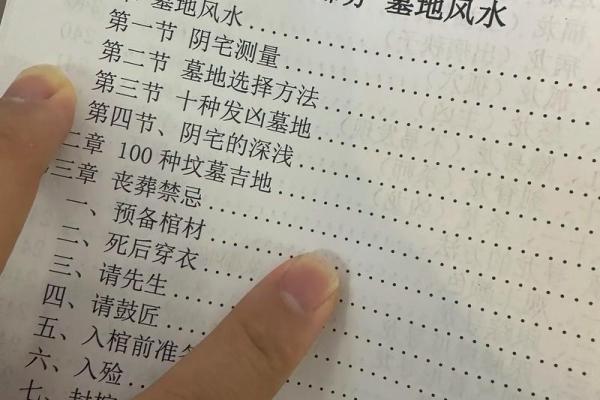 墓地风水
墓地风水
第一节 阴宅测量
第二节 墓地选择方法
第三节 十种发凶墓地
第四节、阴宅的深浅
二章 100种坟墓吉地
三章 丧葬禁忌
一、预备棺材
二、死后穿衣
三、请先生
四、请鼓匠
五、入棺前准备
六、入殓
七、封棺